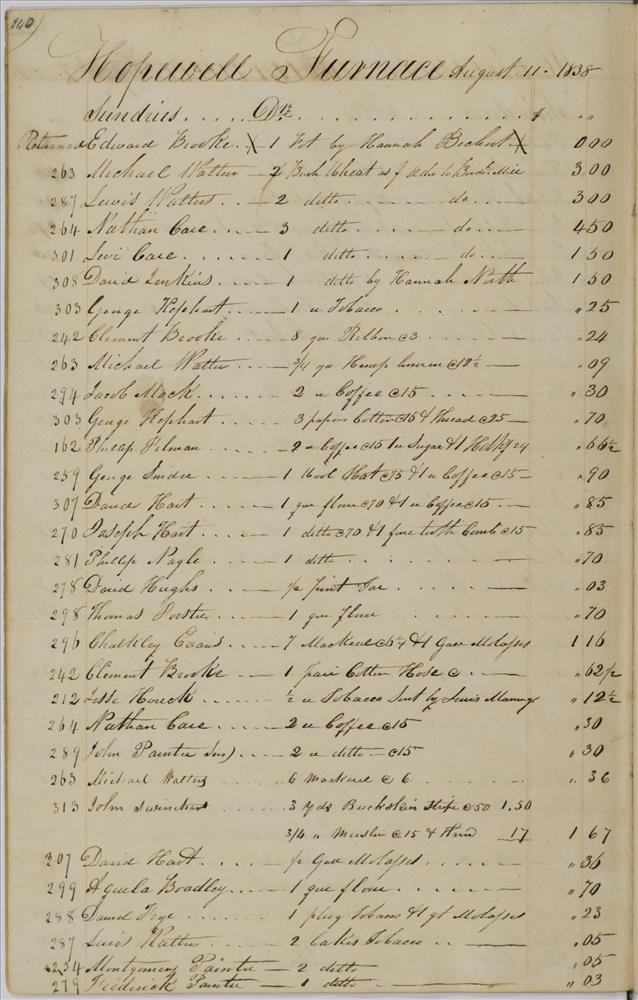 140
Hopewell Furnace August 11. 1838
Sundries Drs $ "
Returned Edward Brooke X 1 by Hannah X 000
263 Michael Watters 2 Bush Wheat as 3 00
287 Lewis Watters 2 ditto do 3 00
264 Nathan Care 3 ditto do 4 50
301 Levi Care 1 ditto do 1 50
308 David Jenkins 1 ditto by Hannah North 1 50
303 George Hephart 1 " Tobacco " 25
242 Clement Brooke 8 yds Ribbon @3 " 24
263 Michael Watters 3/4 yd Hemp linnen @12½ " 09
294 Jacob Mock 2 " Coffee @15 " 30
303 George Hephart 3 papers Cotton @15 & Thread @25 " 70
162 Philip Filman 2 " Coffee @15 1 " Sugar & 1 24 " 66½
259 George Snider 1 Wool Hat @75 & 1 " Coffee @15 " 90
307 David Hart 1 qur flour @70 & 1 " Coffee @15 " 85
270 Joseph Hart 1 ditto @70 & 1 fine tooth Comb @15 " 85
281 Phillip Nagle 1 ditto " 70
278 David Hughs ½ pint Tar " 03
298 Thomas 1 qur flour " 70
296 Chalkley Evans 7 Mackerel & 1 Gall Molasses 1 16
242 Clement Brooke 1 pair Cotton Hose @ " 62½
212 Jesse Houck ½ " Tobacco Sent by Lewis " 12½
264 Nathan Care 2 " Coffee @15 " 30
289 John Painter 2 " ditto @15 " 30
263 Michael Watters 6 Mackerel @6 " 36
313 John 3 yds Buckskin stripe @50 1.50
3/4 " Muslin @15 & 17 1 67
307 David Hart ½ Gall Molasses " 36
299 Aquela Bradley 1 qur flour " 70
288 Daniel Frye 1 plug tobacco & 1 qt Molasses " 23
287 Lewis Watters 2 Cakes Tobacco " 05
234 Montgomery Painter 2 ditto " 05
279 Frederick Painter 1 ditto " 03